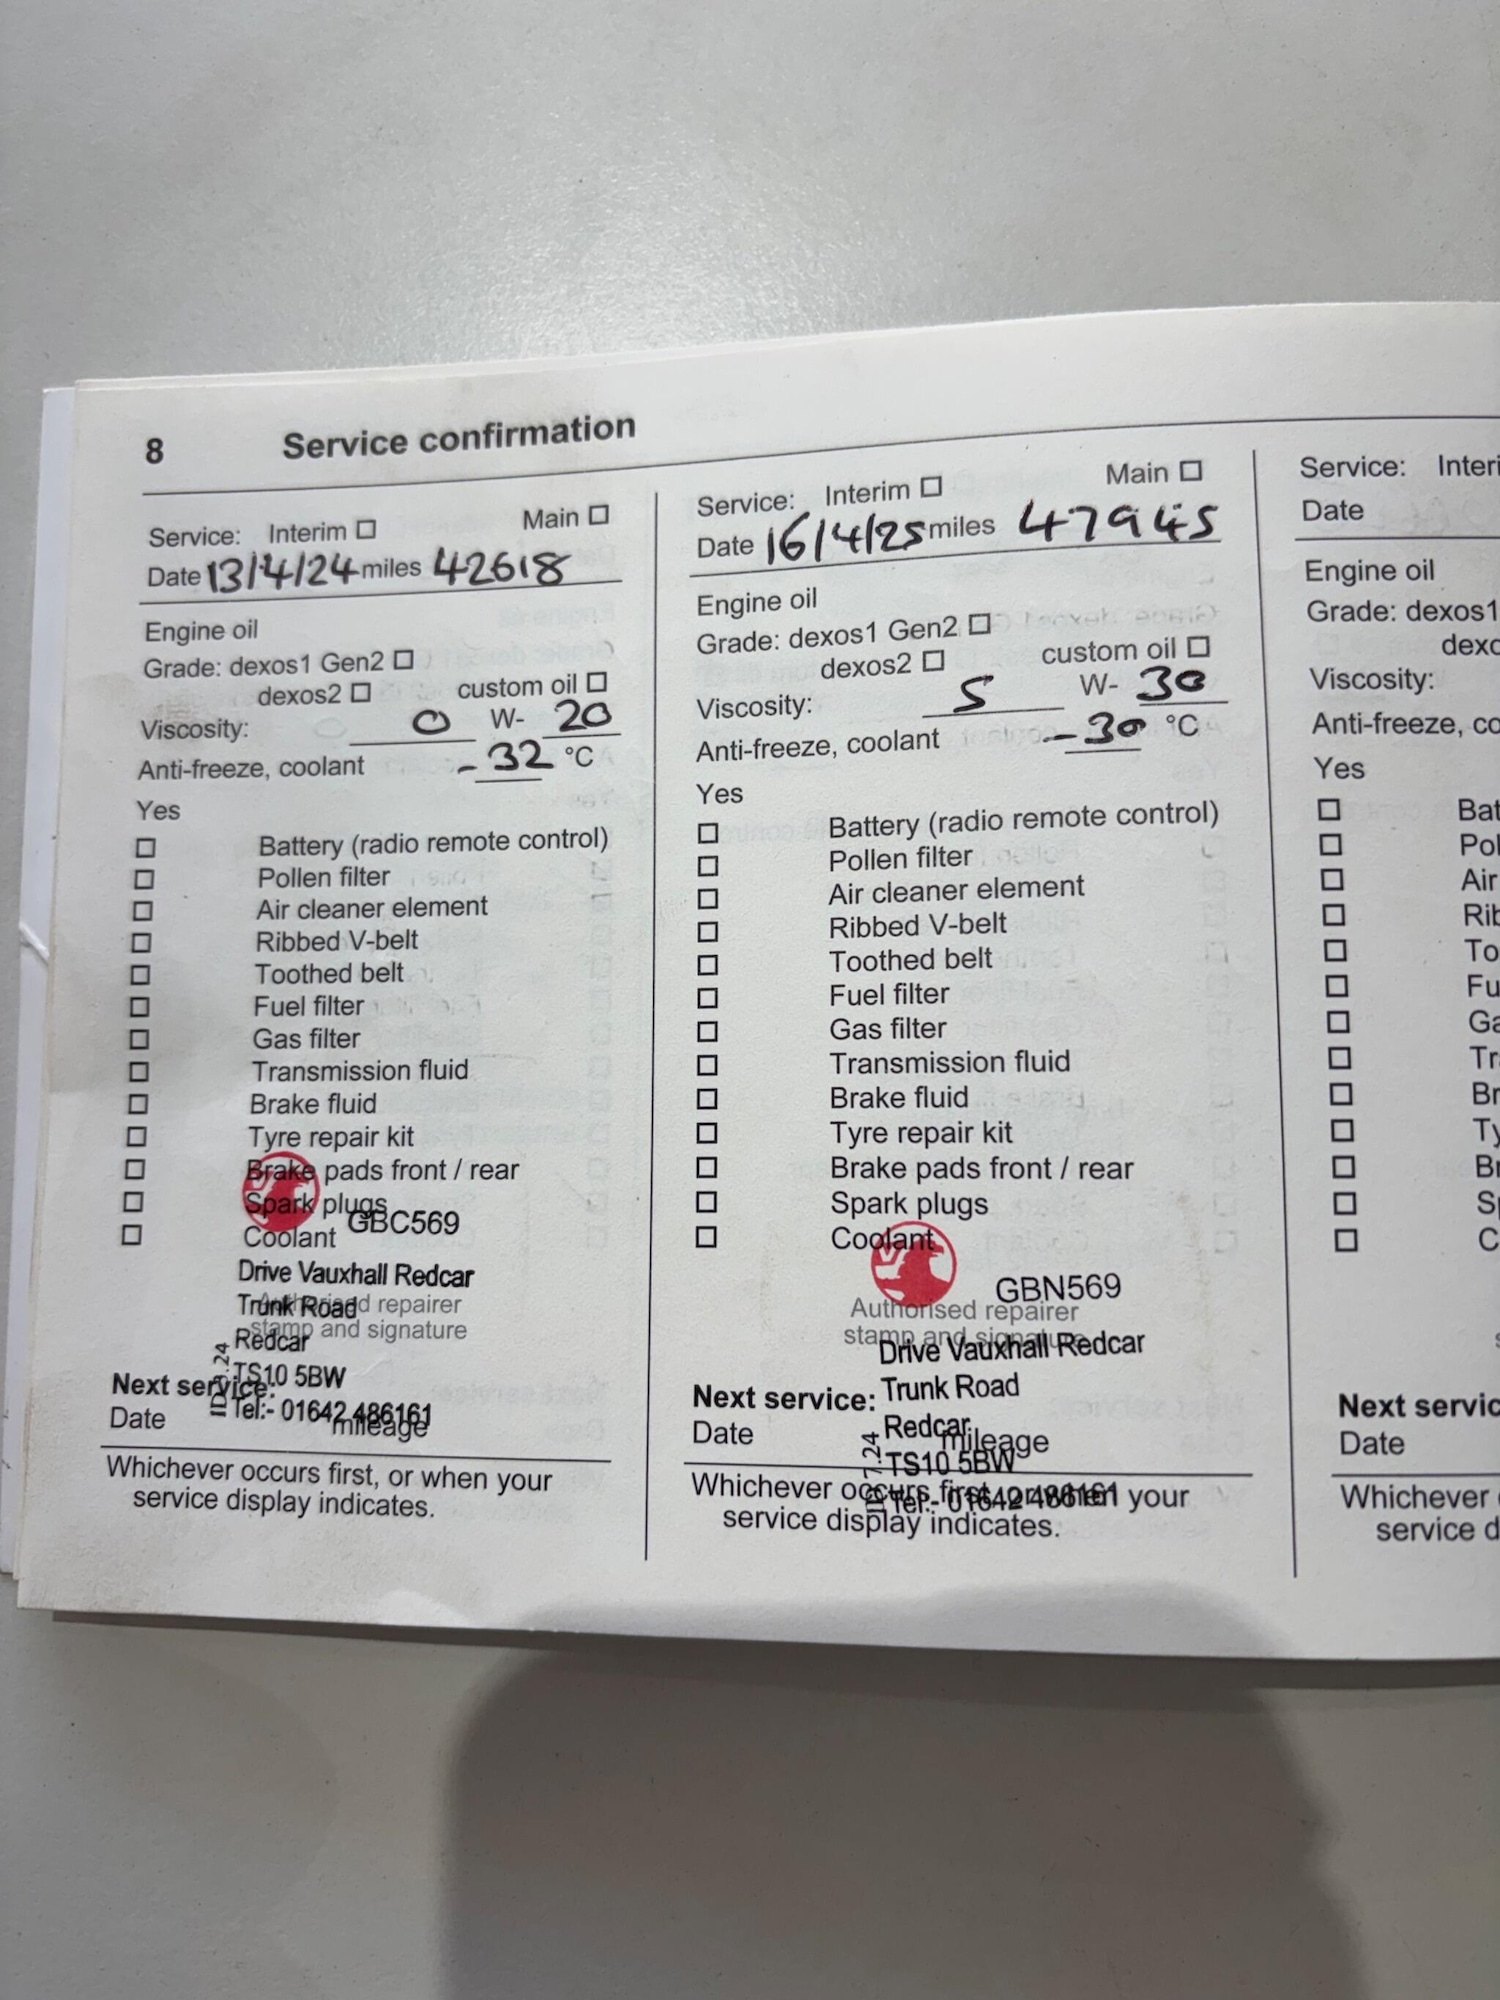 8 Service confirmation
Service: Interim ☐ Main ☐
Date 13/4/24 miles 42618
Engine oil
Grade: dexos1 Gen2 ☐
dexos2 ☐ custom oil ☐
Viscosity: 0 W- 20
Anti-freeze, coolant -32 °C
Yes
☐ Battery (radio remote control)
☐ Pollen filter
☐ Air cleaner element
☐ Ribbed V-belt
☐ Toothed belt
☐ Fuel filter
☐ Gas filter
☐ Transmission fluid
☐ Brake fluid
☐ Tyre repair kit
☐ Brake pads front / rear
☐ Spark plugs
☐ Coolant
GBC569
Drive Vauxhall Redcar
Trunk Road
Authorised repairer
stamp and signature
Redcar
TS10 5BW
Tel:- 01642 486161
Next service:
Date mileage
Whichever occurs first, or when your
service display indicates.
Service: Interim ☐ Main ☐
Date 16/4/25 miles 47945
Engine oil
Grade: dexos1 Gen2 ☐
dexos2 ☐ custom oil ☐
Viscosity: 5 W- 30
Anti-freeze, coolant -30 °C
Yes
☐ Battery (radio remote control)
☐ Pollen filter
☐ Air cleaner element
☐ Ribbed V-belt
☐ Toothed belt
☐ Fuel filter
☐ Gas filter
☐ Transmission fluid
☐ Brake fluid
☐ Tyre repair kit
☐ Brake pads front / rear
☐ Spark plugs
☐ Coolant
GBN569
Authorised repairer
stamp and signature
Drive Vauxhall Redcar
Trunk Road
Redcar
TS10 5BW
Tel:- 01642 486161
Next service:
Date mileage
Whichever occurs first, or when your
service display indicates.
Service: Interi
Date
Engine oil
Grade: dexos1
dexo
Viscosity:
Anti-freeze, co
Yes
☐ Bat
☐ Pol
☐ Air
☐ Rib
☐ To
☐ Fu
☐ Ga
☐ Tr
☐ Br
☐ Ty
☐ Br
☐ Sp
☐ C
Next servic
Date
Whichever
service d